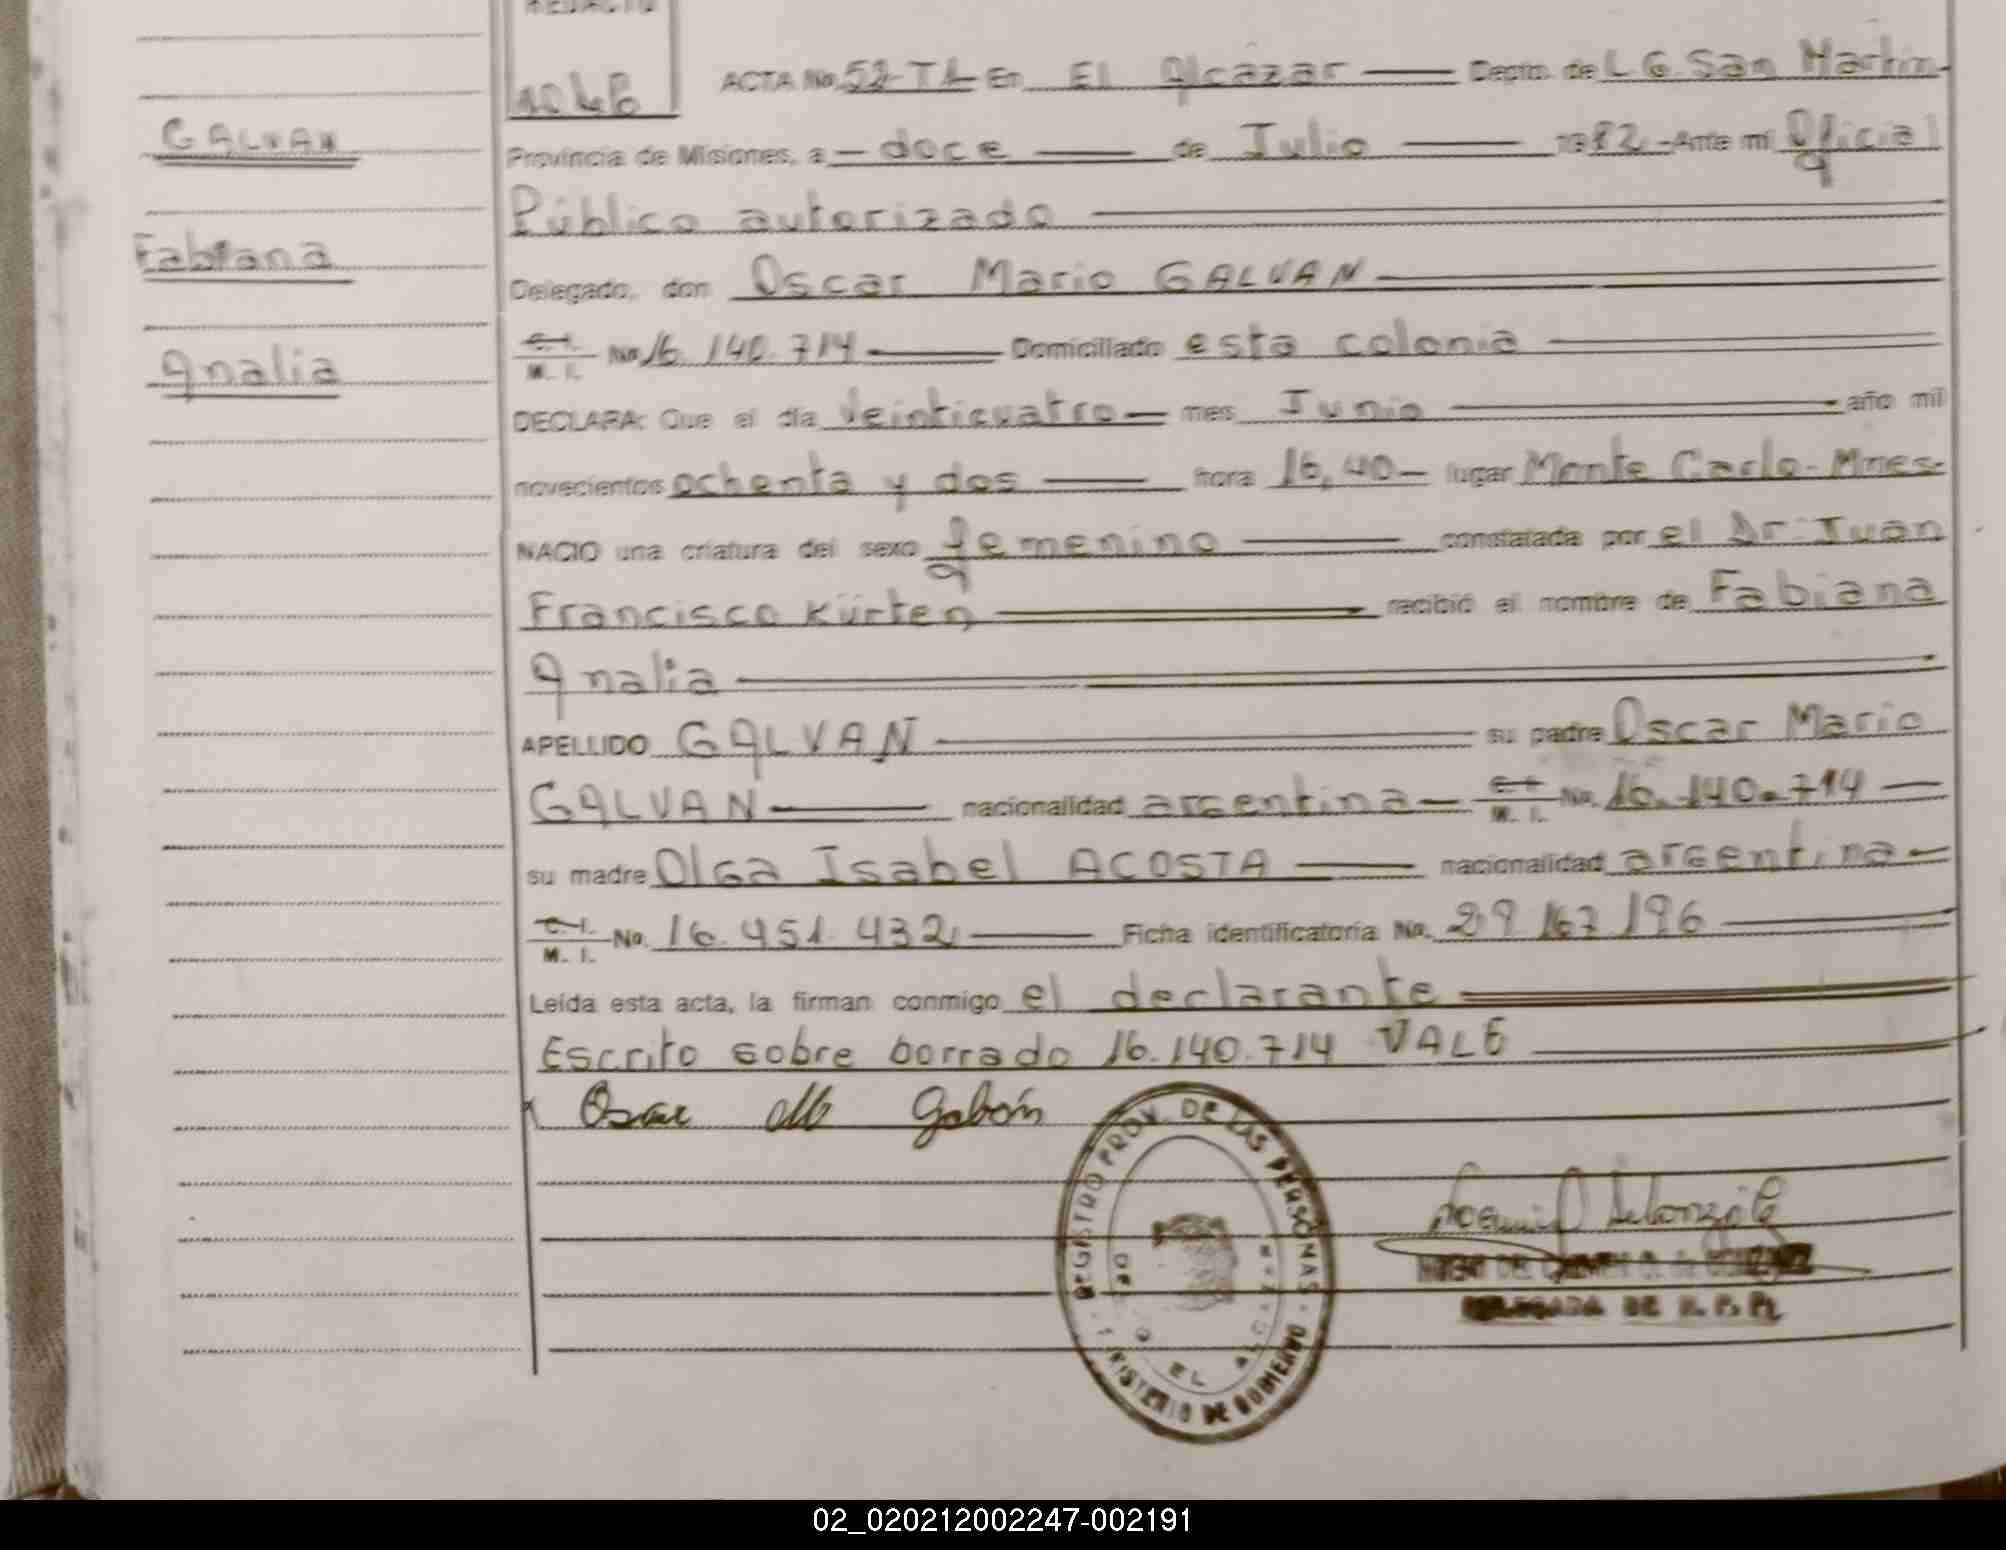 REDACTO
1046
ACTA No. 52-T1- En El Alcázar Depto. de L.G. San Martin
Provincia de Misiones, a doce de Julio 1982.-Ante mi Oficial
Público autorizado
Delegado, don Oscar Mario GALVAN
C.I. M. I. No. 16.140.714 Domiciliado esta colonia
DECLARA: Que el día veinticuatro mes Junio año mil
novecientos ochenta y dos hora 16,40 lugar Monte Carlo-Mnes-
NACIO una criatura del sexo femenino constatada por el Dr. Juan
Francisco Kürten recibió el nombre de Fabiana
Analia
APELLIDO GALVAN su padre Oscar Mario
GALVAN nacionalidad argentina C.I. M. I. No. 16.140.714
su madre Olga Isabel ACOSTA nacionalidad argentina
C.I. M. I. No. 16.451.432 Ficha identificatoria No. 29 167 196
Leída esta acta, la firman conmigo el declarante
Escrito sobre borrado 16.140.714 VALE
Oscar M Galván
GALVAN
Fabiana
Analia
REGISTRO PROV. DE LAS PERSONAS
MINISTERIO DE GOBIERNO
DELEGADA DE R. P. P.
02_020212002247-002191